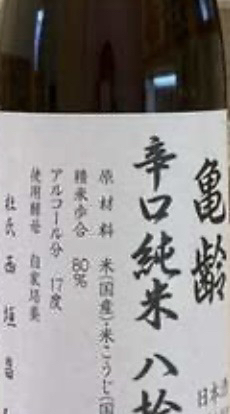 亀齢
日本酒
辛口純米 八拾
原材料 米(国産)・米こうじ(国
精米歩合 80%
アルコール分 17度
使用酵母 自家培養
杜氏 西垣